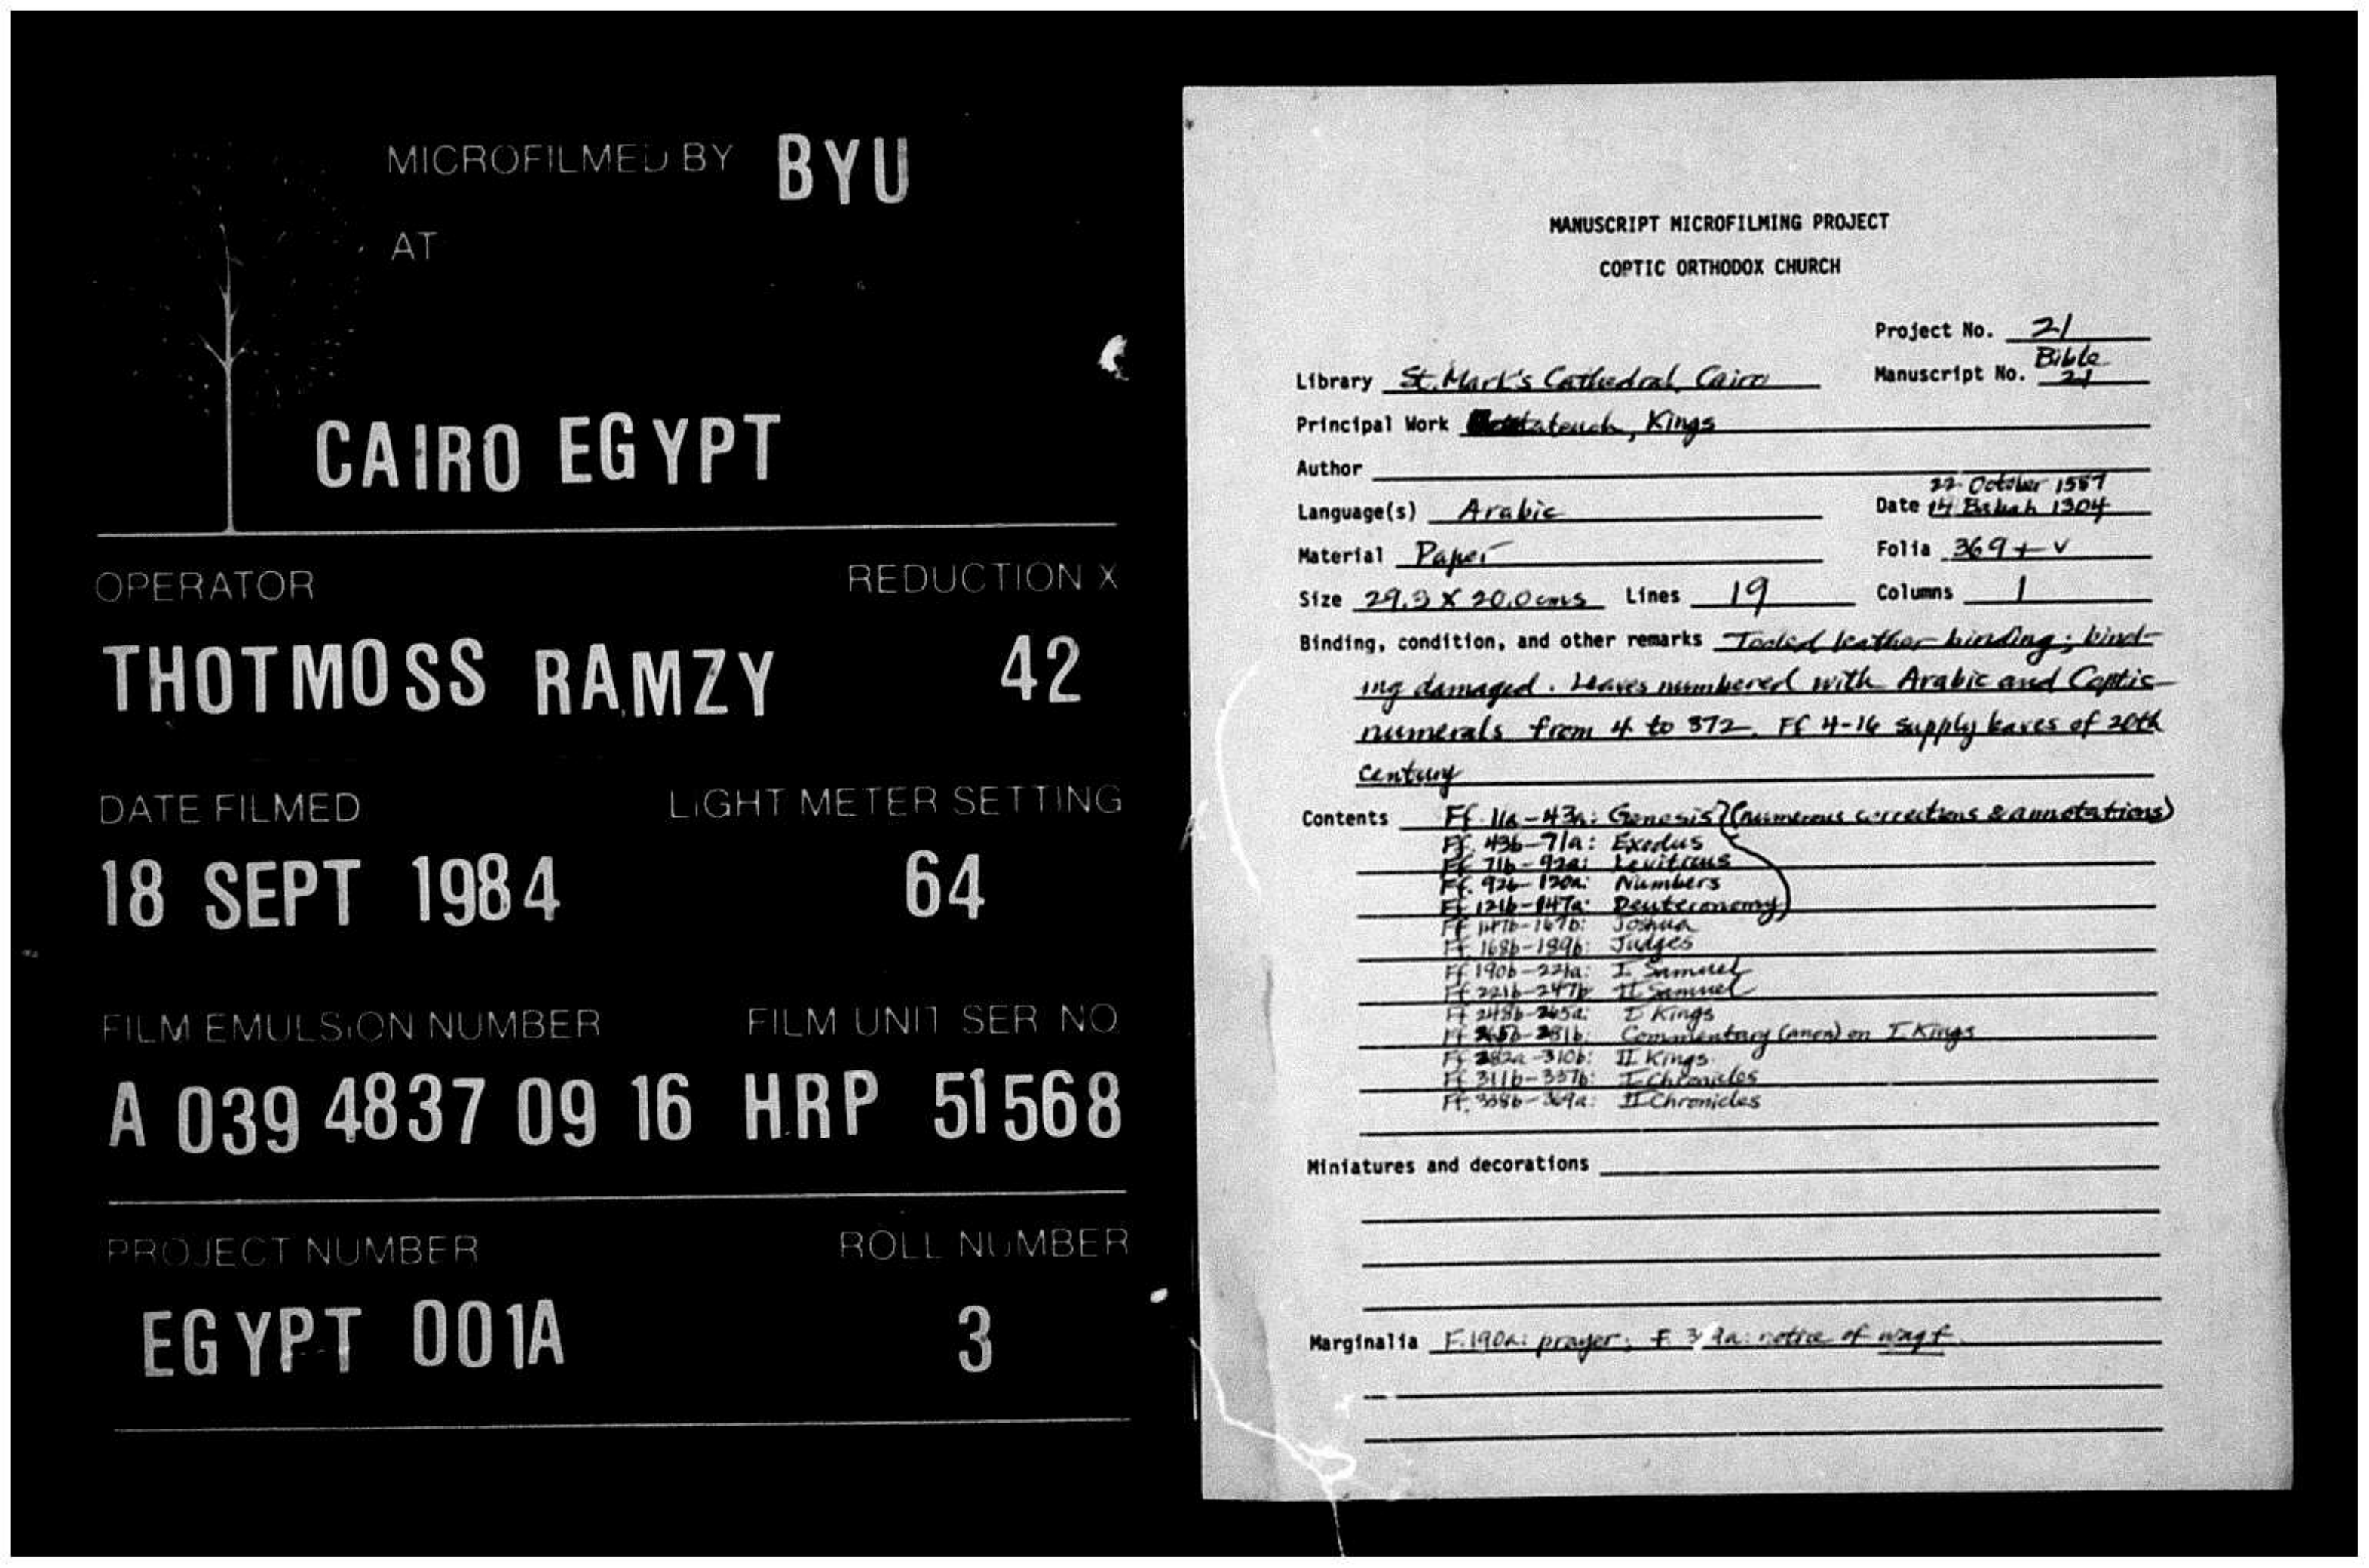 MICROFILMED BY BYU
AT
CAIRO EGYPT
OPERATOR REDUCTION X
THOTMOSS RAMZY 42
DATE FILMED LIGHT METER SETTING
18 SEPT 1984 64
FILM EMULSION NUMBER FILM UNIT SER NO
A 039 4837 09 16 HRP 51568
PROJECT NUMBER ROLL NUMBER
EGYPT 001A 3
MANUSCRIPT MICROFILMING PROJECT
COPTIC ORTHODOX CHURCH
Project No. 21
Bible
Library St. Mark's Cathedral, Cairo Manuscript No. 21
Principal Work Kings
Author
22 October 1587
Language(s) Arabic Date 14 Babah 1304
Material Paper Folia 369 + v
Size 29.3 X 20.0 cms Lines 19 Columns 1
Binding, condition, and other remarks Tooled leather binding; bind-
ing damaged. Leaves numbered with Arabic and Coptic
numerals from 4 to 372. Ff 4-16 supply leaves of 20th
century
Contents Ff. 43a: Genesis (numerous corrections & annotations)
Ff. 43b-71a: Exodus
Ff. 71b-92a: Leviticus
Ff. 92b-120a: Numbers
Ff 121b-147a: Deuteronomy
Ff 147b-167b: Joshua
Ff. 168b-189b: Judges
Ff 190b-221a: I Samuel
Ff 221b-247b II Samuel
Ff 248b-265a: I Kings
Ff 265b-281b: Commentary (anon) on I Kings
Ff 282a-310b: II Kings
Ff 311b-337b: I Chronicles
Ff. 338b-369a: II Chronicles
Miniatures and decorations
Marginalia F. 190a: prayer; F. notice of waqf.